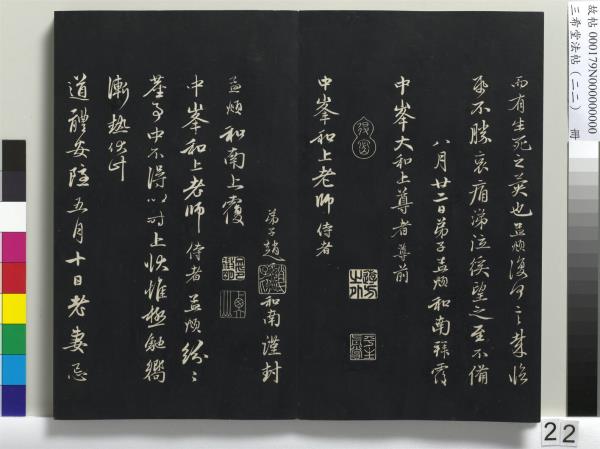 而有生死之異也孟頫復何言求临
死不勝哀痛涕泣俟望之至不備
八月廿二日弟子孟頫和南拜覆
中峯大和上尊者尊前
中峯和上老師侍者
弟子趙
和南謹封
孟頫和南上覆
中峯和上老師侍者孟頫紛〻
塵事中不得以时上状惟極馳嚮
漸热伏计
道體安隐五月十日老妻忌
故帖 000179N000000000
三希堂法帖(二二) 冊
22